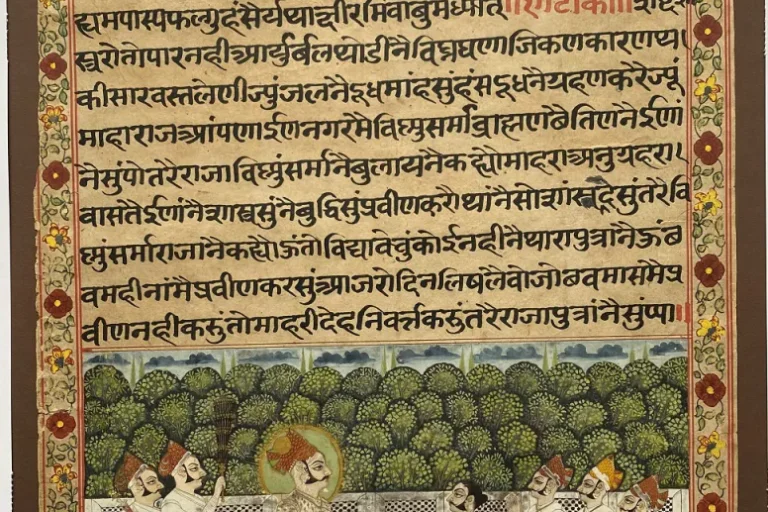 ह्यमपास्यफल्गुहंसैर्यथाक्षीरमिवांबुमध्यात् ॥ टीका ॥
स्वरोतोपारनहीआयुर्बलथोडीनैविघ्नघणाजिकणकारणथ्या
कीसारवस्तलेणीज्युंजलनैदूधमांहसुंहंसदूधनैग्रहणकरैज्यूं
माहाराजआंपणाईणनगरमैविष्णुसर्माब्राह्मणछैतिणनैईणां
नैसुंपोतरैराजाविष्णुंसर्मानैबुलायनैकह्योमाहराअनुग्रहरा।
वासतैईणांनैशास्त्रसुंनैबुद्धिसुंप्रवीणकरौथांनैसोशांसणदेसुंतरैवि
ष्णुंसर्माराजानैकह्यौऊंतोविद्यावेचुंकोईनहीनैथारापुत्रांनैऊंछ
वमहीनांमैप्रवीणकरसुंआजरोदिनलिषलैवोजोछवमासमैप्र
वीणनहीकरुंतोमाहरीदेहनिवर्त्तकरुंतरैराजापुत्रांनैसुंप्पा॥